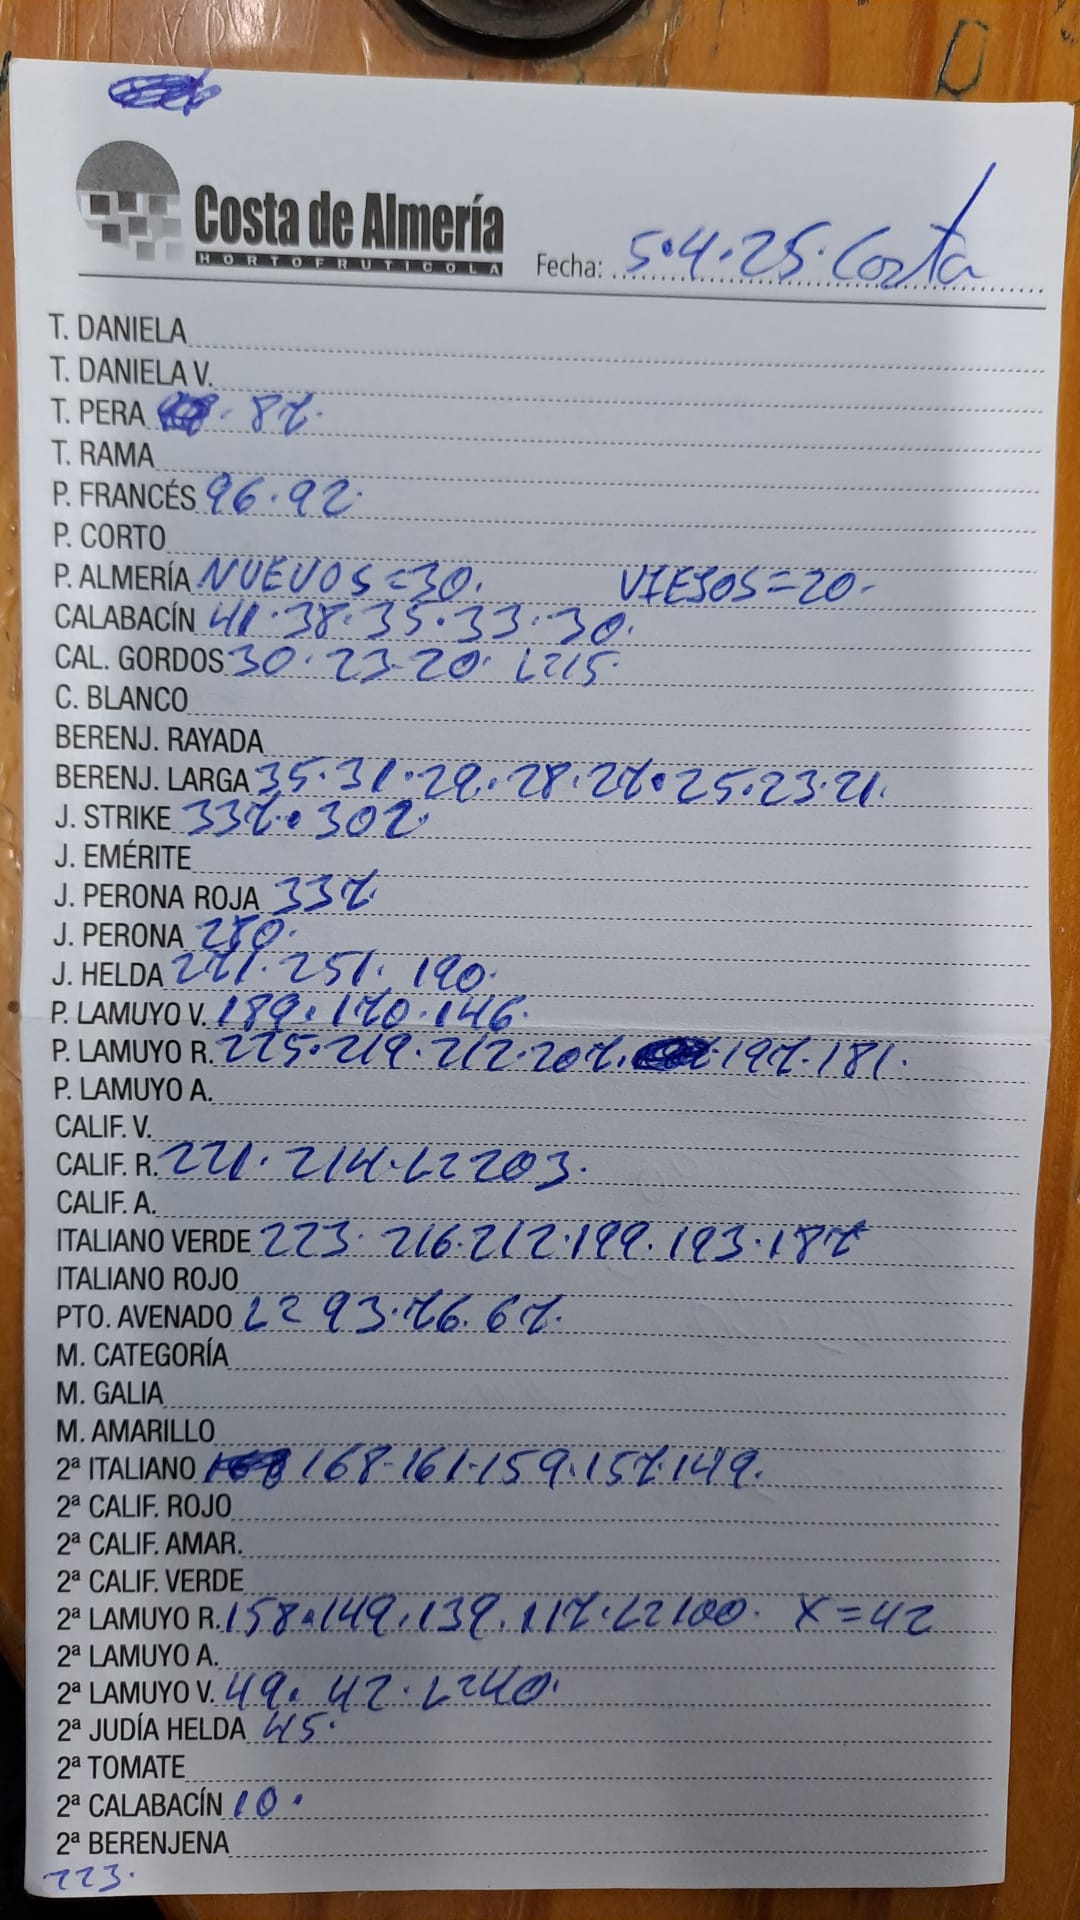 Costa de Almería
HORTOFRUTICOLA
Fecha: 5.4.25. Costa
T. DANIELA
T. DANIELA V.
T. PERA 87.
T. RAMA
P. FRANCÉS 96.92.
P. CORTO
P. ALMERÍA NUEVOS=30. VIEJOS=20.
CALABACÍN 41.38.35.33.30.
CAL. GORDOS 30.23.20. L=15.
C. BLANCO
BERENJ. RAYADA
BERENJ. LARGA 35.31.29.28.27.25.23.21.
J. STRIKE 337.307.
J. EMÉRITE
J. PERONA ROJA 337.
J. PERONA 280.
J. HELDA 271.251.190.
P. LAMUYO V. 189.170.146.
P. LAMUYO R. 225.219.212.207.197.181.
P. LAMUYO A.
CALIF. V.
CALIF. R. 221.214.L=203.
CALIF. A.
ITALIANO VERDE 223.216.212.199.193.187
ITALIANO ROJO
PTO. AVENADO L=93.76.67.
M. CATEGORÍA
M. GALIA
M. AMARILLO
2ª ITALIANO 168.161.159.157.149.
2ª CALIF. ROJO
2ª CALIF. AMAR.
2ª CALIF. VERDE
2ª LAMUYO R. 158.149.139.117.L=100. X=42
2ª LAMUYO A.
2ª LAMUYO V. 49.42.L=40.
2ª JUDÍA HELDA 45.
2ª TOMATE
2ª CALABACÍN 10.
2ª BERENJENA
223.